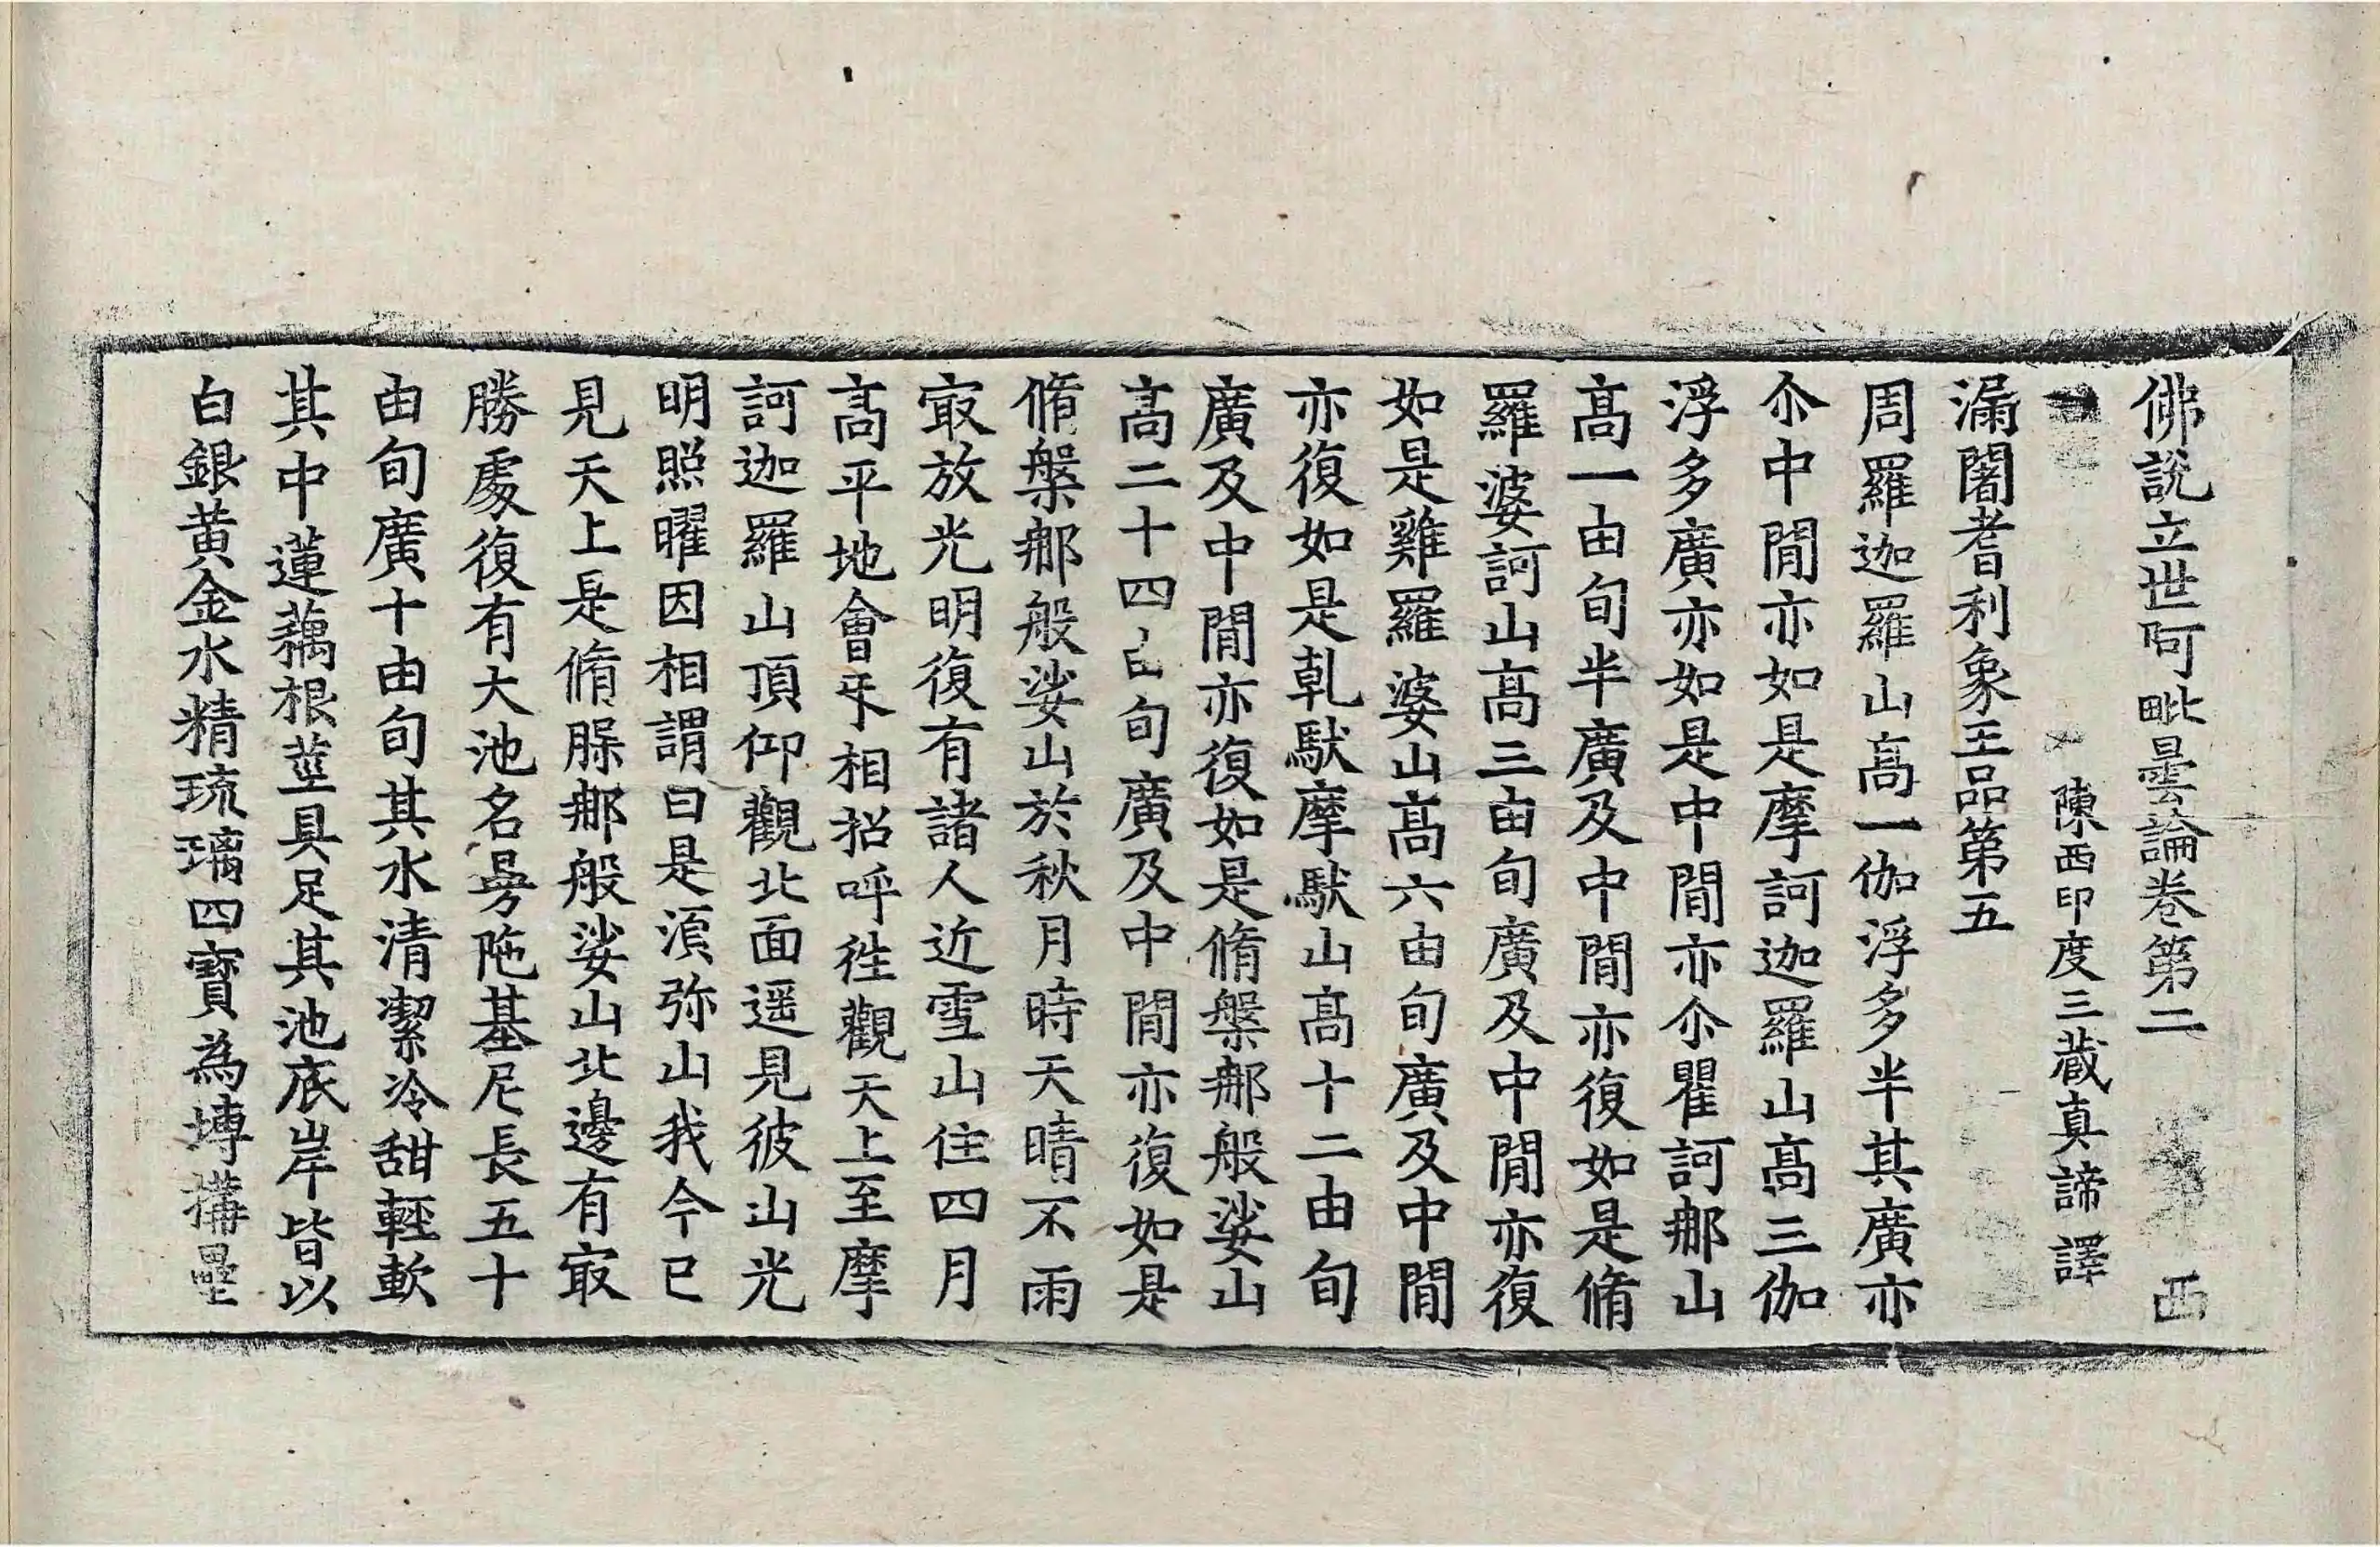 佛說立世阿毗曇論卷第二 西
陳西印度三藏真諦譯
漏闍耆利象王品第五
周羅迦羅山高一伽浮多半其廣亦
尒中間亦如是摩訶迦羅山高三伽
浮多廣亦如是中間亦尒瞿訶那山
高一由旬半廣及中間亦復如是脩
羅婆訶山高三由旬廣及中間亦復
如是雞羅婆山高六由旬廣及中間
亦復如是乹馱摩馱山高十二由旬
廣及中間亦復如是脩槃那般娑山
高二十四由旬廣及中間亦復如是
脩槃那般娑山於秋月時天晴不雨
㝡放光明復有諸人近雪山住四月
高平地會㸦相招呼徃觀天上至摩
訶迦羅山頂仰觀北面遥見彼山光
明照曜因相謂曰是湏弥山我今已
見天上是脩腬那般娑山北邊有㝡
勝處復有大池名曼陁基尼長五十
由旬廣十由旬其水清潔冷甜輕軟
其中蓮藕根莖具足其池底岸皆以
白銀黃金水精琉璃四寶為塼搆壘